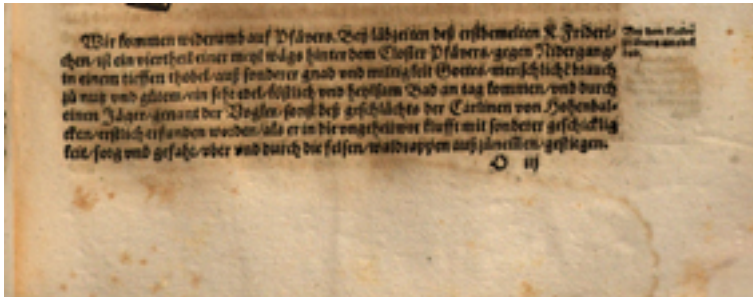 Wir kommen widerumb auf Pfävers. Beÿ läbzeiten deß erstbemelten K. Frideri-
chen/ ist ein viertheil einer meyl wägs hinter dem Closter Pfävers/ gegen Nidergang/
in einem tieffen thobel/ auß sonderer gnad vnd miltigkeit Gottes/ menschlichē brauch
zů nutz vnd gůtem/ ein seht edel/ köstlich vnd heylsam Bad an tag kommen/ vnd durch
einen Jäger/ genant der Vogler/ sonst deß geschlächts der Carlinen von Hohenbal-
cken/ erstlich erfunden worden/ als er in die vngeheuwre klufft mit sonderer geschicklig
keit/ sorg vnd gefahr/ vber vnd durch die felsen/ waldrappen auß zůnemmen/ gestiegen.
O iij
Von dem